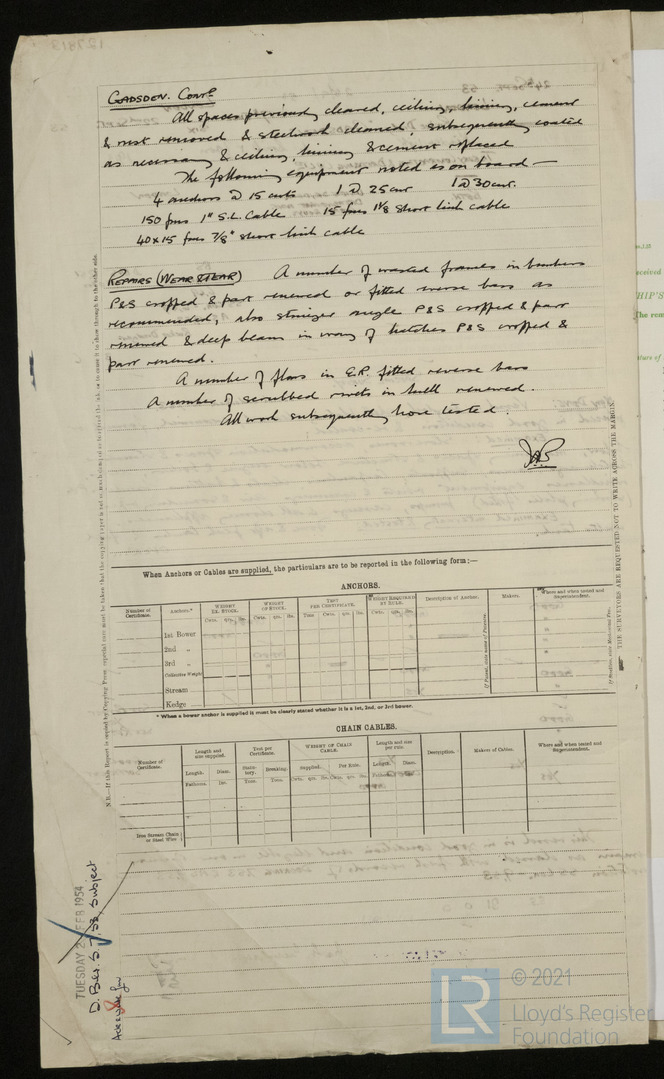 GADSDEN. Contd
All spaces previously cleared, ceiling, lining, cement
& rust removed & steelwork cleaned, subsequently coated
as necessary & ceiling, lining & cement replaced
The following equipment noted as on board —
4 anchors @ 15 cwts 1 @ 25 cwt 1 @ 30 cwt.
150 fms 1" S.L. Cable 15 fms 1 1/8 short link cable
40 x 15 fms 7/8" short link cable
REPAIRS (WEAR & TEAR) A number of wasted frames in bunkers
P&S cropped & part renewed or fitted reverse bars as
recommended, also stringer angle P&S cropped & part
renewed & deep beams in way of hatches P&S cropped &
part renewed.
A number of floors in E.R. fitted reverse bars
A number of scrubbed rivets in hull renewed.
All work subsequently hose tested.
When Anchors or Cables are supplied, the particulars are to be reported in the following form:—
ANCHORS.
Number of Certificate. Anchors.* WEIGHT EX. STOCK. WEIGHT OF STOCK. TEST PER CERTIFICATE. WEIGHT REQUIRED BY RULE. Description of Anchor. Makers. Where and when tested and Superintendent.
Cwts. qrs. lbs. Cwts. qrs. lbs. Tons Cwts. qrs. lbs. Cwts. qrs. lbs.
1st Bower
2nd „
3rd „
Collective Weight
Stream
Kedge
* When a bower anchor is supplied it must be clearly stated whether it is a 1st, 2nd, or 3rd bower.
CHAIN CABLES.
Number of Certificate. Length and size supplied. Test per Certificate. WEIGHT OF CHAIN CABLE. Length and size per rule. Description. Makers of Cables. Where and when tested and Superintendent.
Length. Diam. Statutory. Breaking. Supplied. Per Rule. Length. Diam.
Fathoms. Ins. Tons. Tons. Cwts. qrs. lbs. Cwts. qrs. lbs. Fathoms.
Iron Stream Chain or Steel Wire
N.B.—If this Report is copied by Copying Press, especial care must be taken that the copying
THE SURVEYORS ARE REQUESTED NOT TO WRITE ACROSS THE MARGIN.
TUESDAY 2 FEB 1954
Subject
© 2021
LR
Lloyd's Register
Foundation